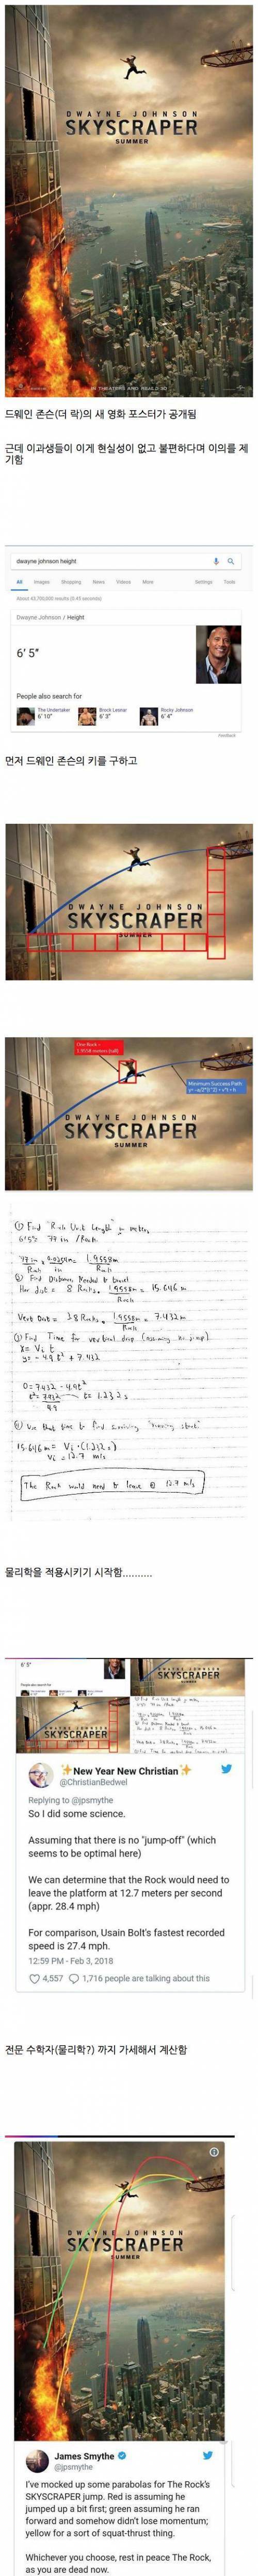 DWAYNE JOHNSON
SKYSCRAPER
SUMMER
IN THEATERS AND REALD 3D
드웨인 존슨(더 락)의 새 영화 포스터가 공개됨
근데 이과생들이 이게 현실성이 없고 불편하다며 이의를 제
기함
dwayne johnson height
All Images Shopping News Videos More Settings Tools
Dwayne Johnson / Height
6' 5"
People also search for
The Undertaker
6' 10"
Brock Lesnar
6' 3"
Rocky Johnson
6' 4"
Feedback
먼저 드웨인 존슨의 키를 구하고
DWAYNE JOHNSON
SKYSCRAPER
SUMMER
One Rock =
1.9558 meters (tall)
Minimum Success Path
DWAYNE JOHNSON
SKYSCRAPER
SUMMER
① Find "Rock Unit Length" in meters
6'5" 77 in /Rock
② Find Distance Needed to travel
15.646 m
7.432 m
③ Find Time for vertical drop (assuming no jump)
x = Vi t
y = -4.9 t² + 7.432
0 = 7.432 - 4.9t²
t = 1.232 s
④ Use that time to find surviving "running start"
15.646m = Vi · (1.232 s)
Vi = 12.7 m/s
The Rock would need to leave @ 12.7 m/s
물리학을 적용시키기 시작함..........
6' 5"
SKYSCRAPER
SKYSCRAPER
✨New Year New Christian✨
@ChristianBedwel
Replying to @jpsmythe
So I did some science.
Assuming that there is no "jump-off" (which
seems to be optimal here)
We can determine that the Rock would need to
leave the platform at 12.7 meters per second
(appr. 28.4 mph)
For comparison, Usain Bolt's fastest recorded
speed is 27.4 mph.
12:59 PM - Feb 3, 2018
4,557 1,716 people are talking about this
전문 수학자(물리학?) 까지 가세해서 계산함
DWAYNE JOHNSON
SKYSCRAPER
SUMMER
James Smythe
@jpsmythe
I've mocked up some parabolas for The Rock's
SKYSCRAPER jump. Red is assuming he
jumped up a bit first; green assuming he ran
forward and somehow didn't lose momentum;
yellow for a sort of squat-thrust thing.
Whichever you choose, rest in peace The Rock,
as you are dead now.